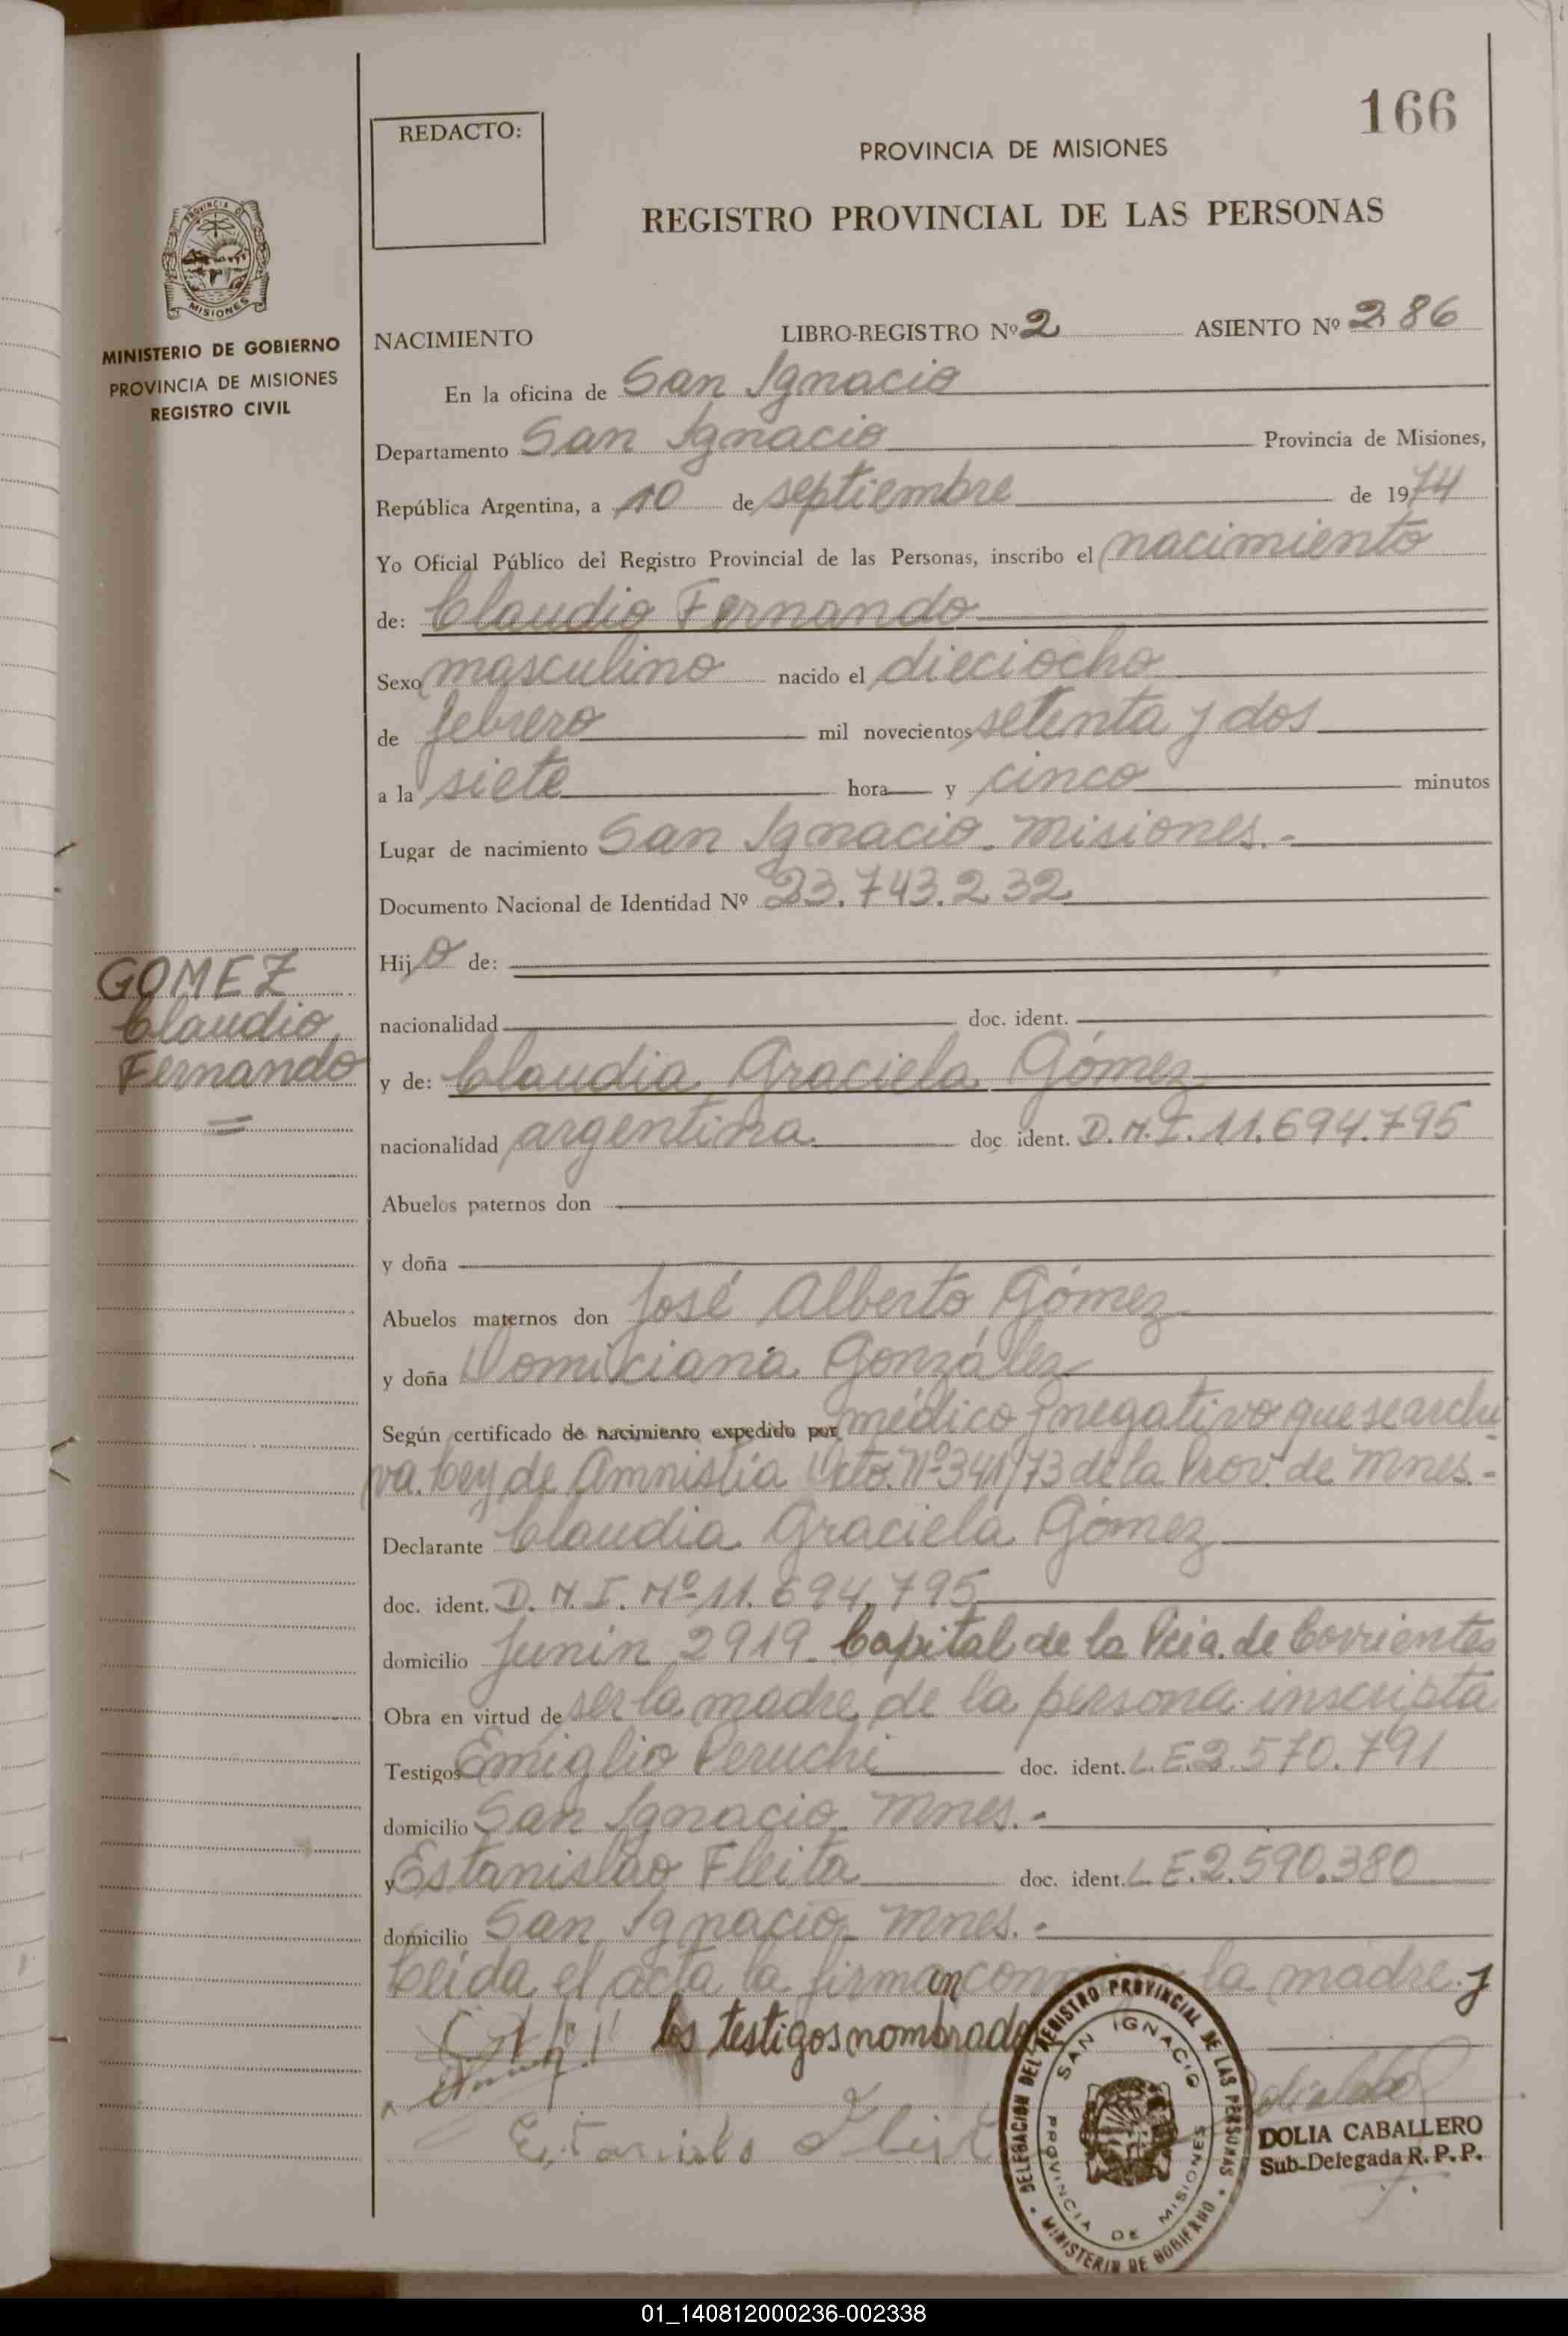 166
REDACTO:
PROVINCIA DE MISIONES
REGISTRO PROVINCIAL DE LAS PERSONAS
PROVINCIA DE
MISIONES
MINISTERIO DE GOBIERNO
PROVINCIA DE MISIONES
REGISTRO CIVIL
NACIMIENTO LIBRO-REGISTRO Nº 2 ASIENTO Nº 286
En la oficina de San Ignacio
Departamento San Ignacio Provincia de Misiones,
República Argentina, a 10 de septiembre de 1974
Yo Oficial Público del Registro Provincial de las Personas, inscribo el nacimiento
de: Claudio Fernando
Sexo masculino nacido el dieciocho
de febrero mil novecientos setenta y dos
a la siete hora y cinco minutos
Lugar de nacimiento San Ignacio. Misiones.-
Documento Nacional de Identidad Nº 23.743.232
Hijo de:
GOMEZ
Claudio
Fernando
=
nacionalidad doc. ident.
y de: Claudia Graciela Gómez
nacionalidad argentina doc. ident. D.N.I. 11.694.795
Abuelos paternos don
y doña
Abuelos maternos don José Alberto Gómez
y doña Domiciana González
Según certificado de nacimiento expedido por médico y negativo que se archi
va. Ley de Amnistía Dcto. Nº 341/73 de la Prov. de Mnes.-
Declarante Claudia Graciela Gómez
doc. ident. D.N.I. Nº 11.694.795
domicilio Junín 2919. Capital de la Pcia. de Corrientes
Obra en virtud de ser la madre de la persona inscripta
Testigos Emiglio Peruchi doc. ident. L.E.2.570.791
domicilio San Ignacio. Mnes.-
y Estanislao Fleita doc. ident. L.E.2.590.380
domicilio San Ignacio. Mnes.-
Leída el acta la firman la madre y
los testigos nombrado
Estanislo
DELEGACION DEL REGISTRO PROVINCIAL DE LAS PERSONAS
MINISTERIO DE GOBIERNO
SAN IGNACIO
PROVINCIA DE MISIONES
DOLIA CABALLERO
Sub-Delegada R. P. P.
01_140812000236-002338